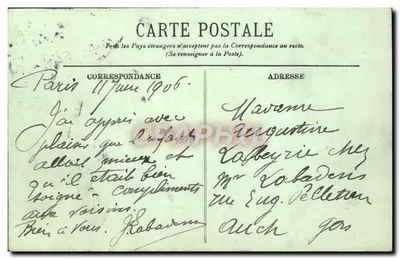 CARTE POSTALE
Tous les Pays étrangers n'acceptent pas la Correspondance au recto.
(Se renseigner à la Poste).
CORRESPONDANCE
ADRESSE
Paris 11 Juin 1906
J'ai appris avec
plaisir que l'enfant
allait mieux et
qu'il était bien
soigné - Compliments
aux voisins.
Bien à vous. J Labadens
Madame
Augustine
Labeyrie chez
Mr Labadens
rue Eug. Pelletan
Auch Gers